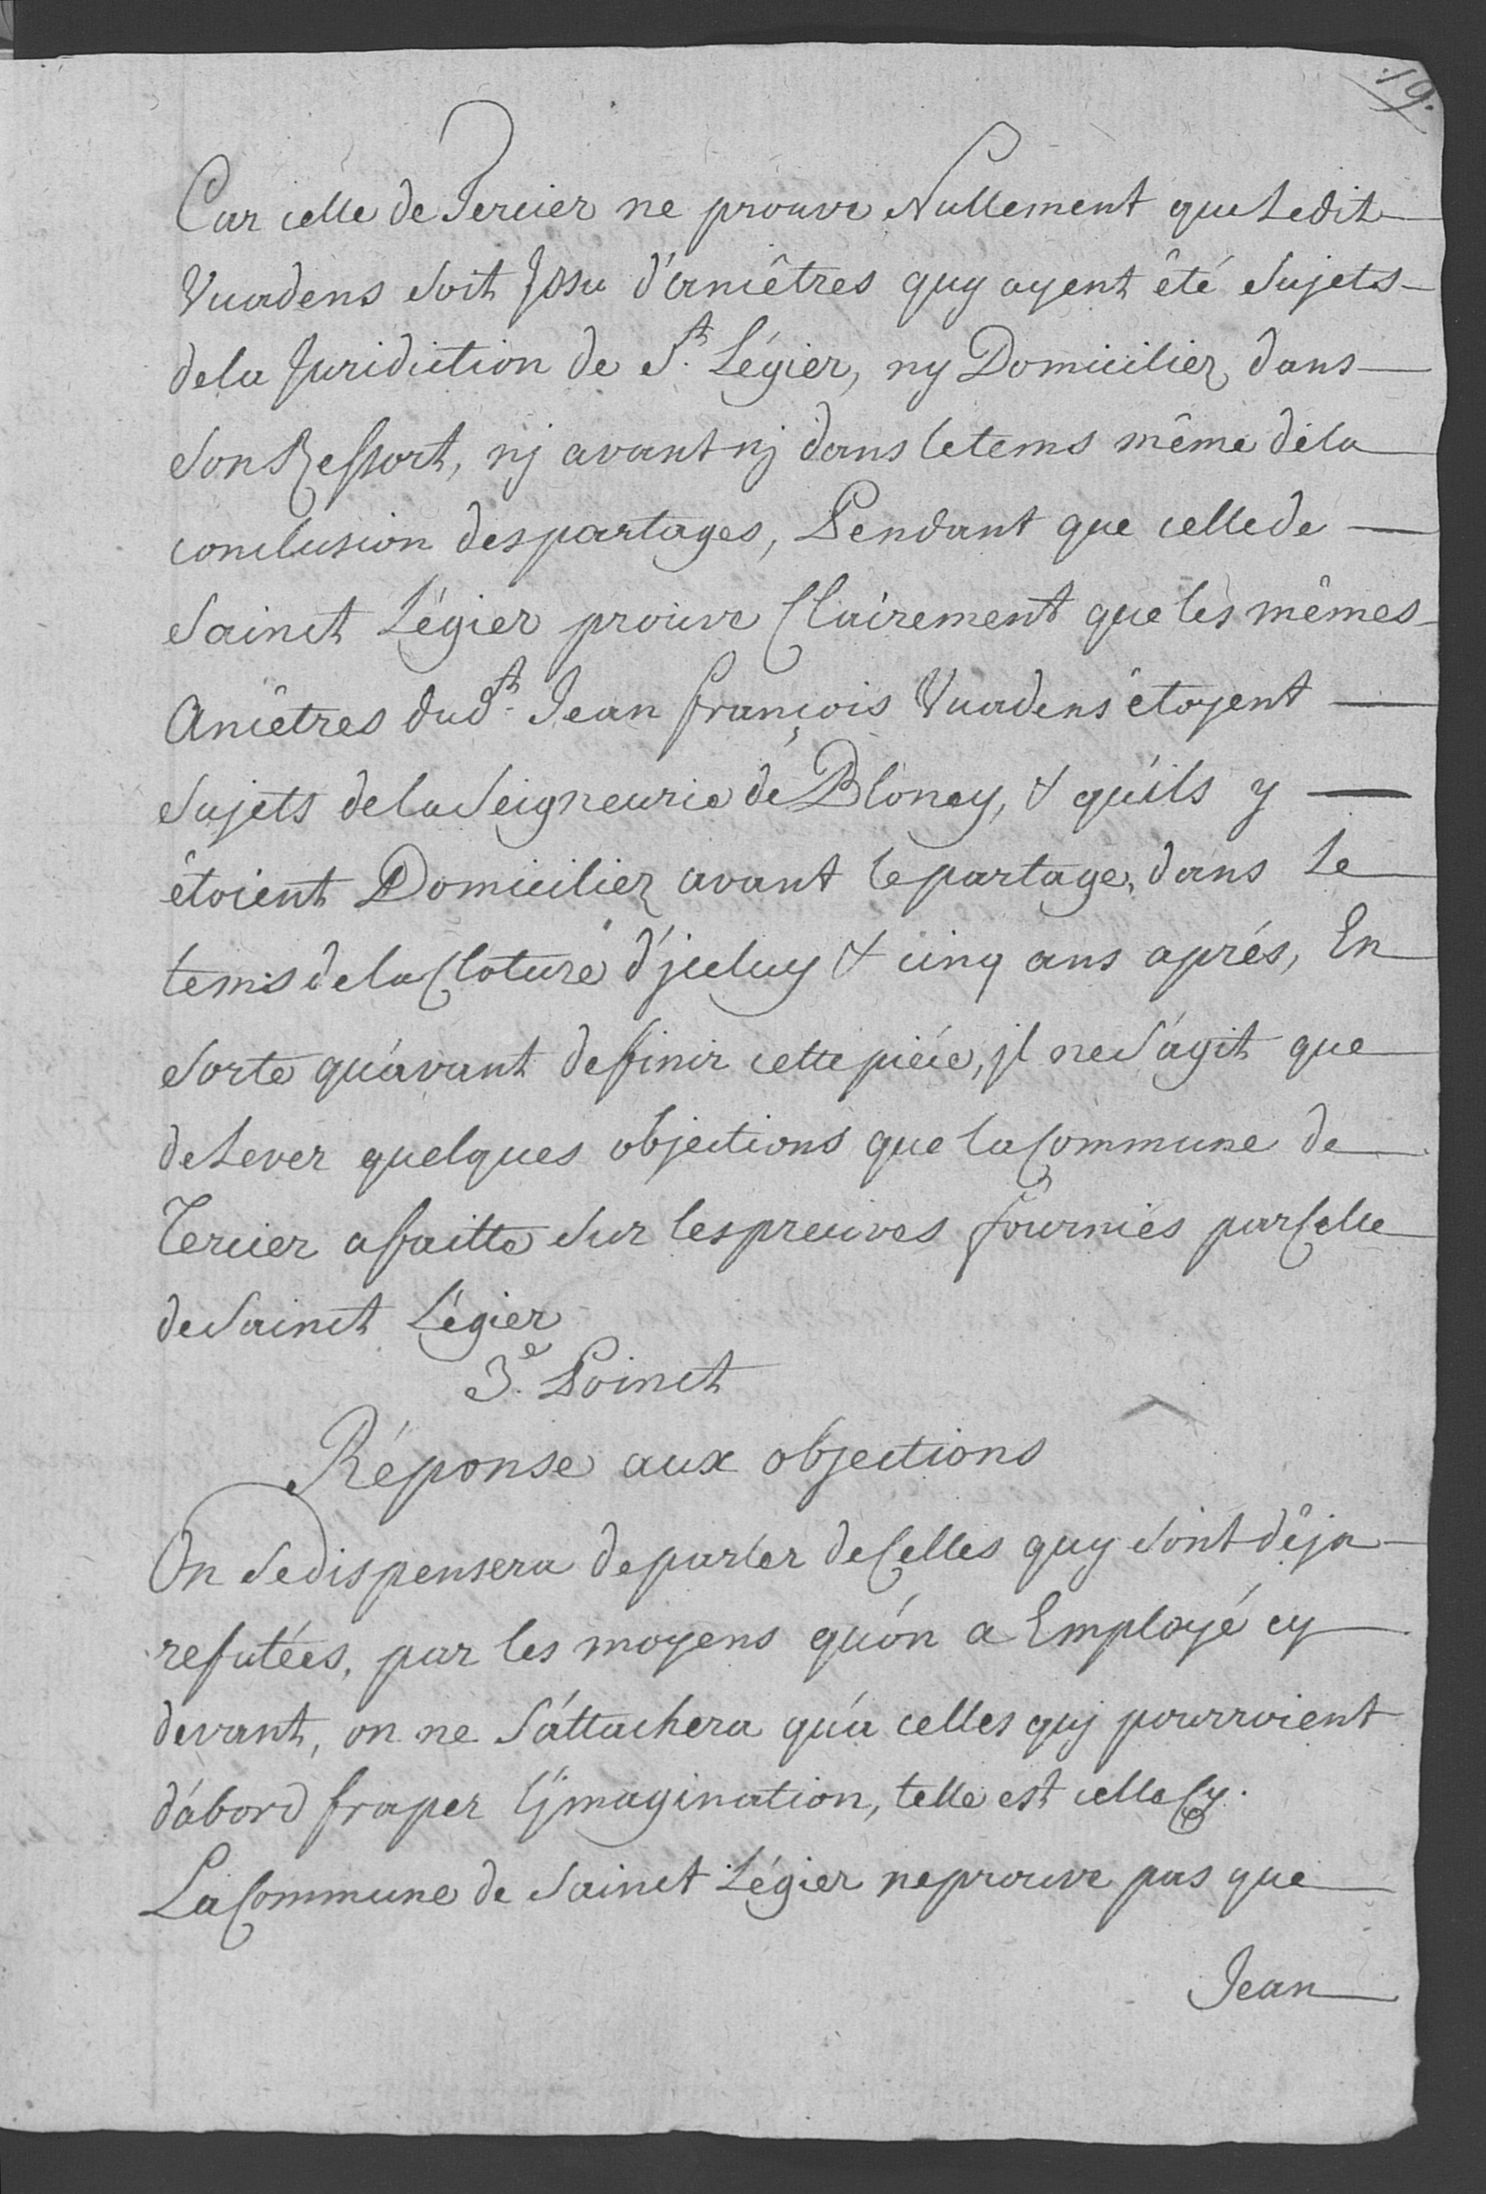 19.
Car celle de Tercier ne prouve Nullement que Ledit
Vuadens soit Jssu d'ancêtres quy ayent êté sujets
dela Juridiction de St. Légier, ny Domicilier dans
son Ressort, nj avant nj dans letems même de la
conclusion des partages, Pendant que celle de
Sainct Légier prouve Clairement que les mêmes
Ancêtres dudt. Jean françois Vuadens êtoyent
sujets de la Seigneurie de Blonay, & qu'ils y
êtoient Domicilier avant le partage, dans Le
tems de la Cloture d'jceluy & cinq ans aprés, En
sorte qu'avant de finir cette piéce, jl ne s'agit que
de Lever quelques objections que la Commune de
Tercier a faitte sur les preuves fournies par Celle
de Sainct Légier
3e. Poinct
Réponse aux objections
On se dispensera de parler de Celles quy sont dêja
refutées, par les moyens qu'on a Employé cy
devant, on ne s'attachera qu'a celles quj pourroient
d'abord fraper l'jmagination, telle est celle Cy.
La Commune de Sainct Légier ne prouve pas que
Jean